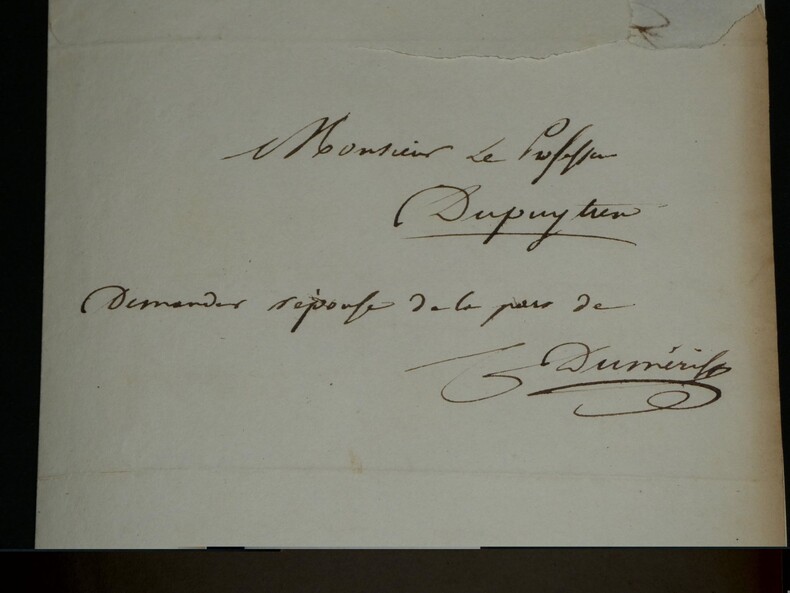 Monsieur Le Professeur
Dupuytren
Demander réponse de la part de
C Duméril